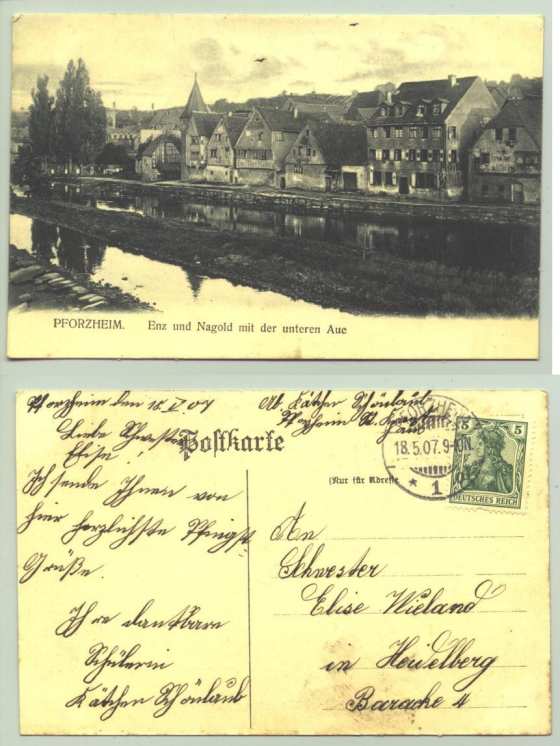 PFORZHEIM. Enz und Nagold mit der unteren Aue
Pforzheim den 18. V 07
Liebe Schwester
Elise!
Ich sende Ihnen von
hier herzlichste Pfingst
Grüße.
Ihre dankbare
Schülerin
Kätchen Schönlaub
Ab. Kätchen Schönlaub
Pforzheim
Postkarte
(Nur für Adresse
PFORZHEIM
18.5.07.9-10N.
* 1
5 5
DEUTSCHES REICH
An
Schwester
Elise Wieland
in Heidelberg
Barache 4